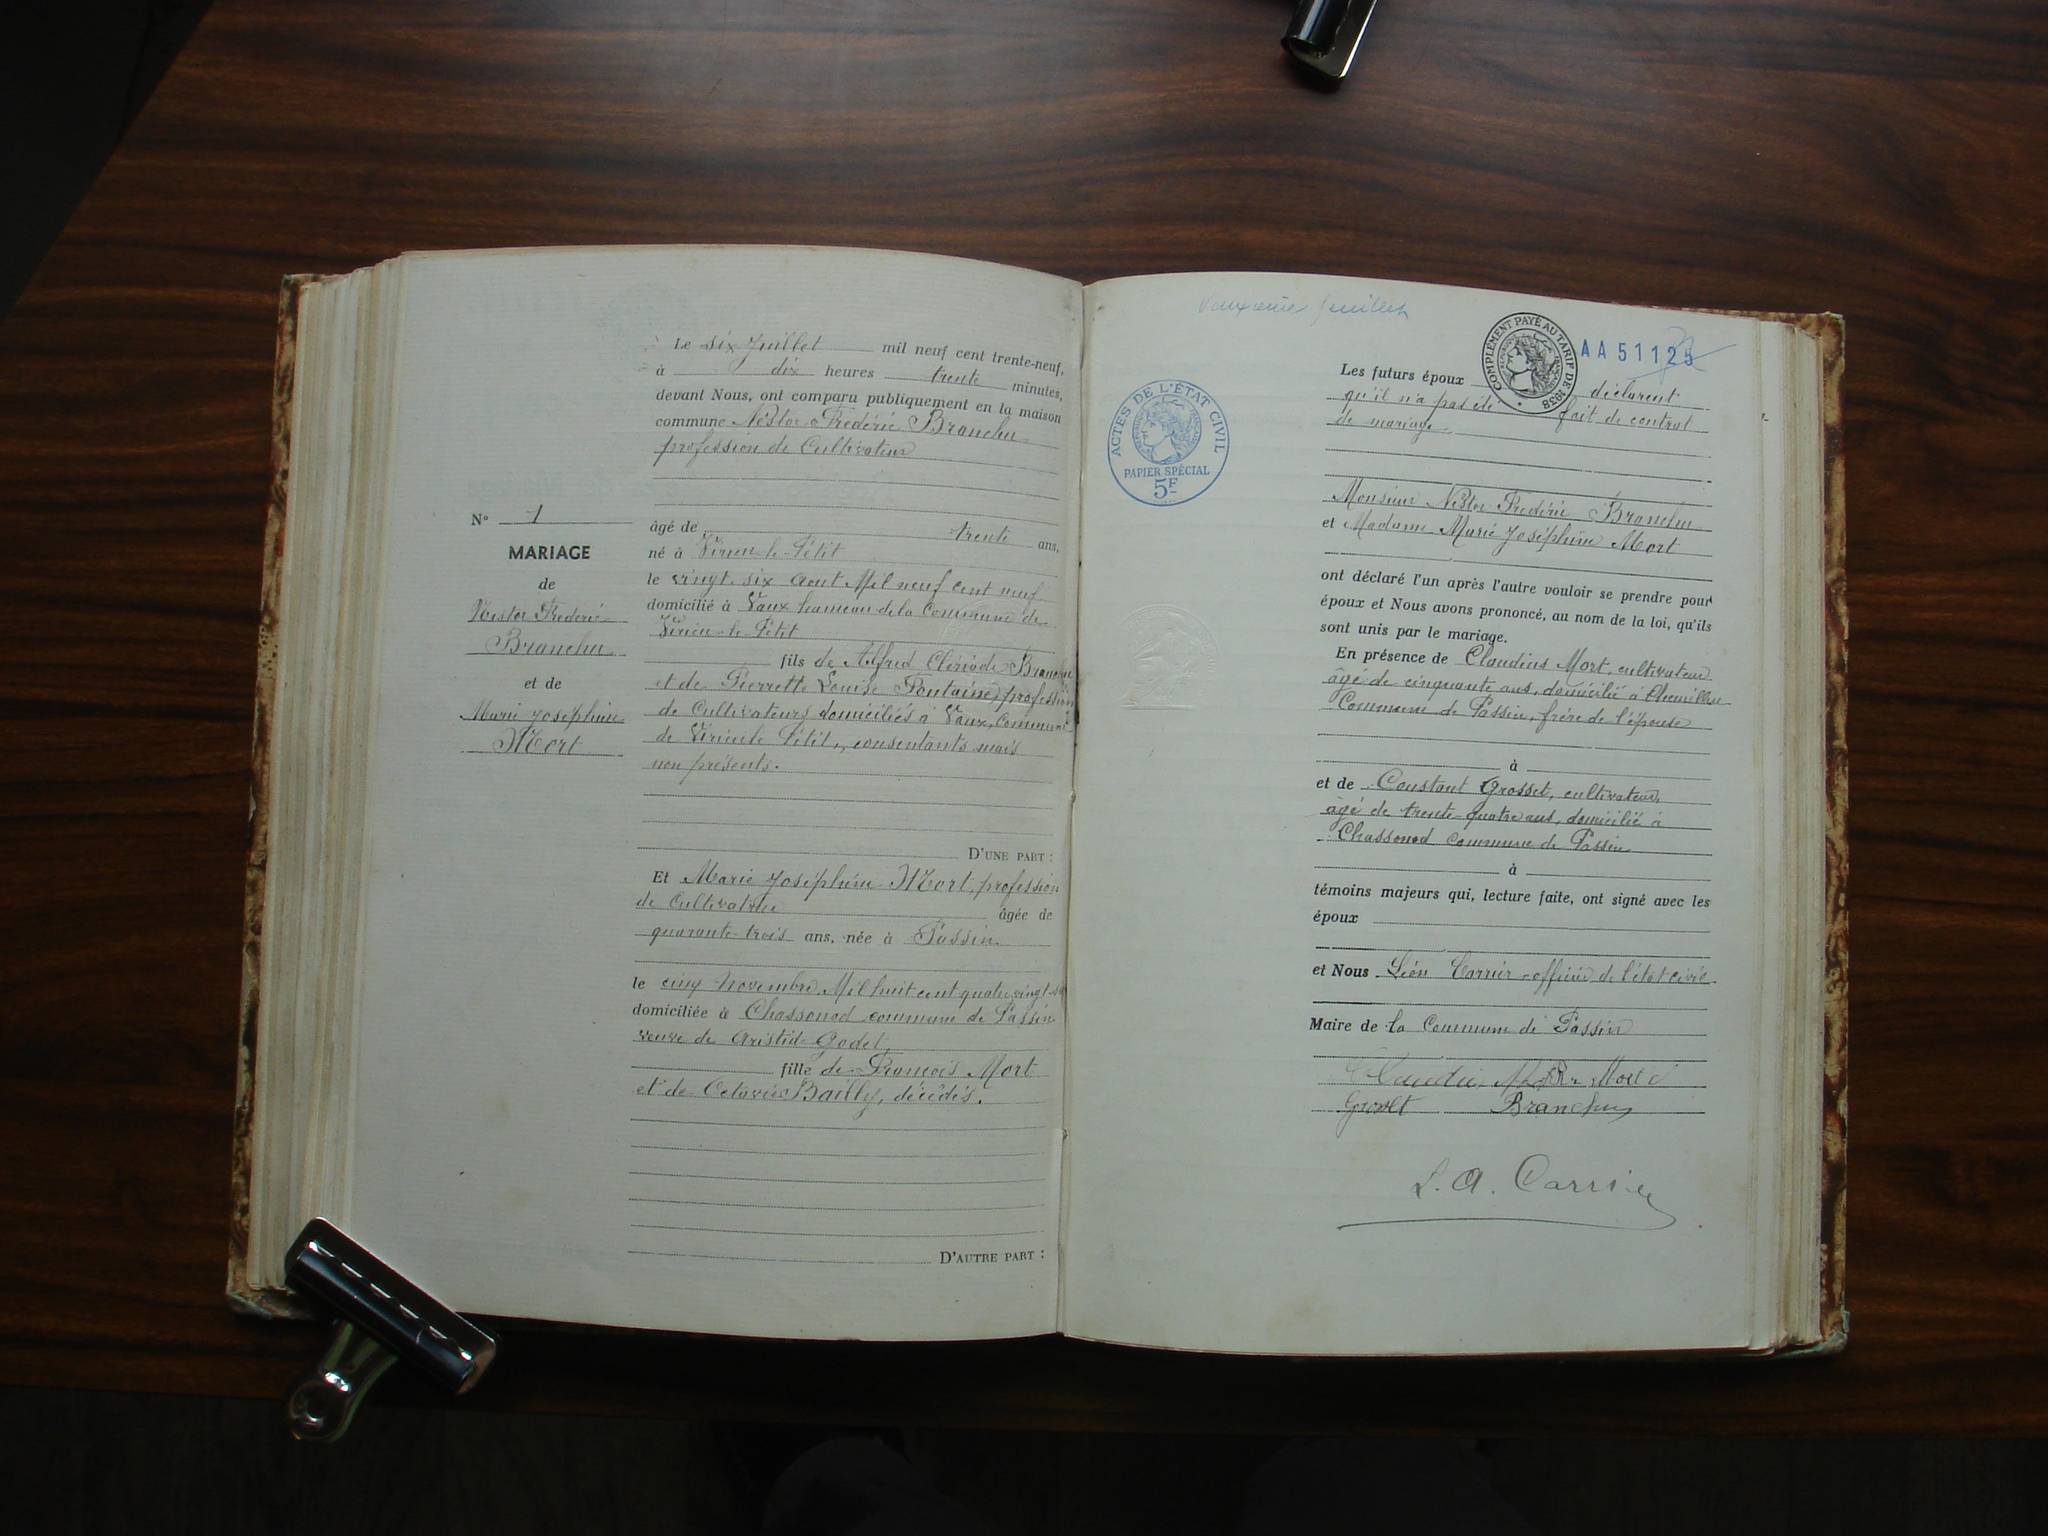 Le six Juillet mil neuf cent trente-neuf,
à dix heures trente minutes,
devant Nous, ont comparu publiquement en la maison
commune Nestor Frédéric Branchu
profession de Cultivateur
âgé de trente ans,
né à Virieu-le-Petit
le vingt six Aout Mil neuf cent neuf
domicilié à Vaux hameau de la Commune de
Virieu-le-Petit
fils de Alfred Clériade Branchu
et de Pierrette Louise Fontaine, profession
de Cultivateurs domiciliés à Vaux, Commune
de Virieu le Petit, consentants mais
non présents.
D'UNE PART :
Et Marie Joséphine Mort, profession
de Cultivatrice âgée de
quarante-trois ans, née à Passin
le cinq Novembre Mil huit cent quatre vingt
domiciliée à Chassonod commune de Passin
veuve de Aristid Godet
fille de François Mort
et de Octavie Bailly, décédés.
D'AUTRE PART :
N° 1
MARIAGE
de
Nestor Frédéric
Branchu
et de
Marie Joséphine
Mort
feuillet
COMPLÉMENT PAYÉ AU TARIF DE 1938
AA 5112
ACTES DE L'ÉTAT CIVIL
PAPIER SPÉCIAL
5F
Les futurs époux déclarent
qu'il n'a pas été fait de contrat
de mariage
Monsieur Nestor Frédéric Branchu
et Madame Marie Joséphine Mort
ont déclaré l'un après l'autre vouloir se prendre pour
époux et Nous avons prononcé, au nom de la loi, qu'ils
sont unis par le mariage.
En présence de Claudius Mort, cultivateur
âgé de cinquante ans, domicilié à
Commune de Passin, frère de l'épouse
à
et de Constant Grosset, cultivateur,
âgé de trente-quatre ans, domicilié à
Chassonod commune de Passin
à
témoins majeurs qui, lecture faite, ont signé avec les
époux
et Nous Léon Carrier officier de l'état civil
Maire de la Commune de Passin
Mort
Branchu
L. A. Carrier